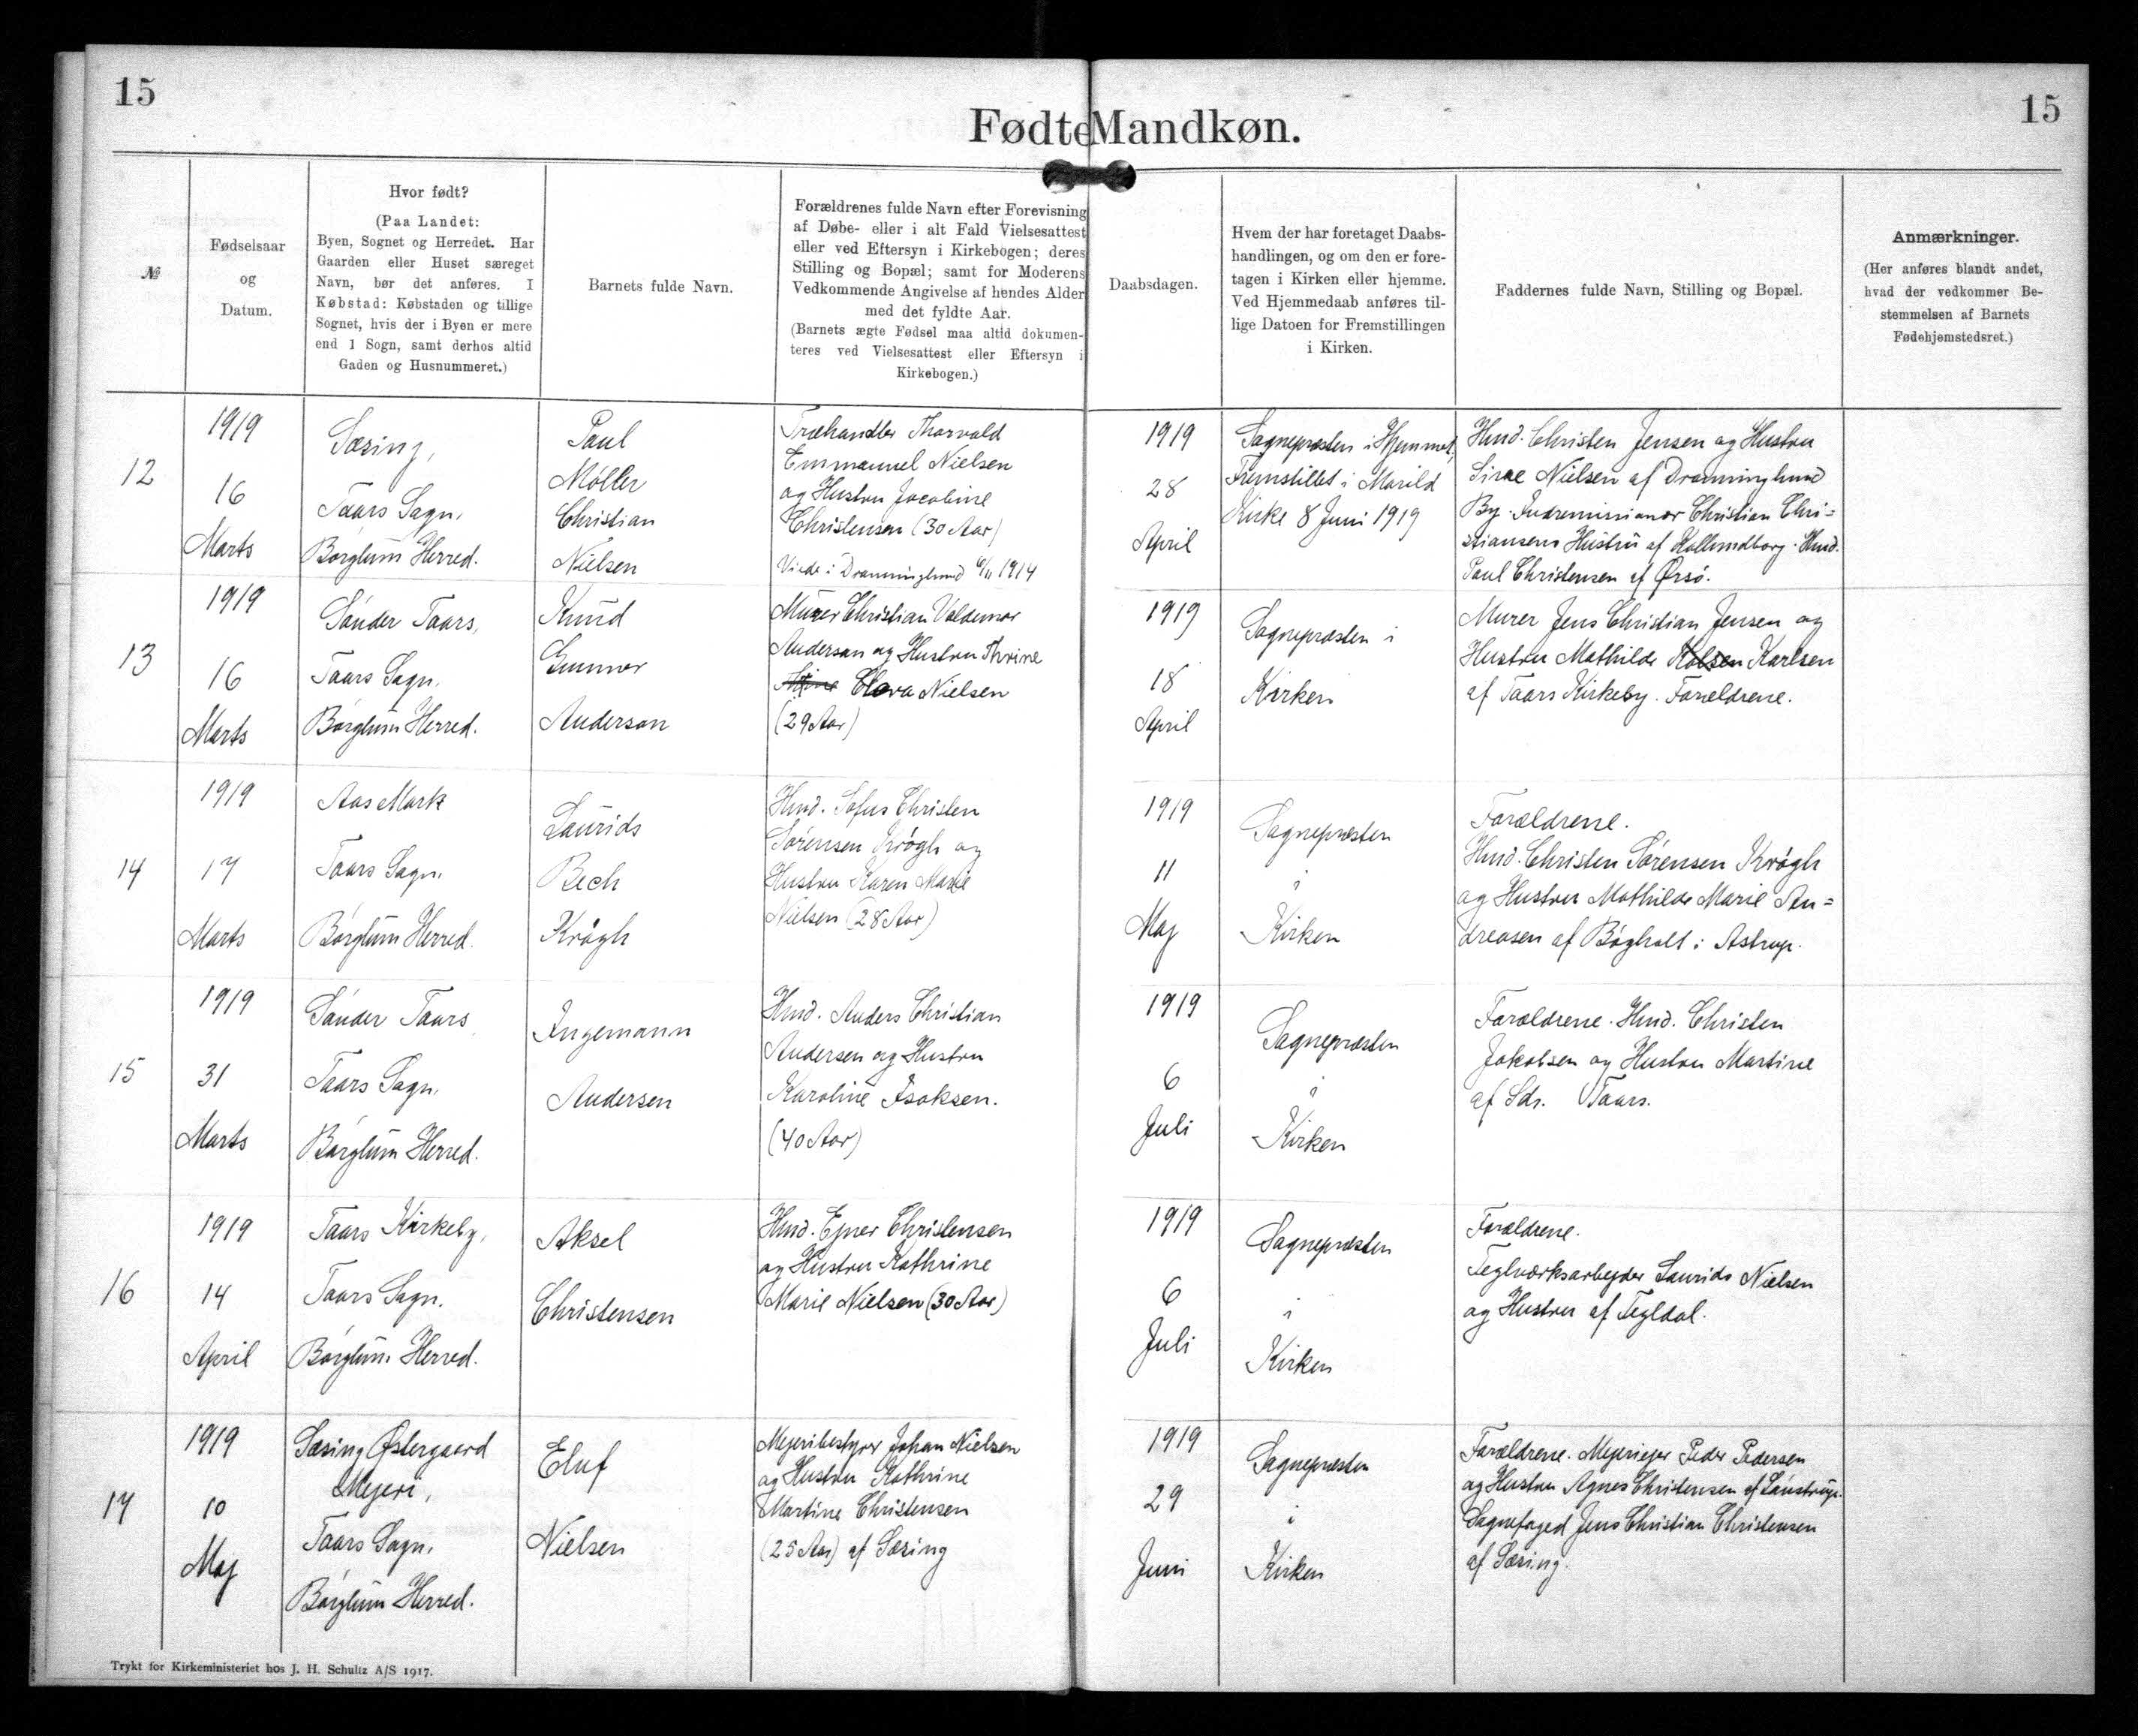 15
15
Fødte Mandkøn.
№
Fødselsaar
og
Datum.
Hvor født?
(Paa Landet:
Byen, Sognet og Herredet. Har
Gaarden eller Huset særeget
Navn, bør det anføres. I
Købstad: Købstaden og tillige
Sognet, hvis der i Byen er mere
end 1 Sogn, samt derhos altid
Gaden og Husnummeret.)
Barnets fulde Navn.
Forældrenes fulde Navn efter Forevisning
af Døbe- eller i alt Fald Vielsesattest
eller ved Eftersyn i Kirkebogen; deres
Stilling og Bopæl; samt for Moderens
Vedkommende Angivelse af hendes Alder
med det fyldte Aar.
(Barnets ægte Fødsel maa altid dokumen-
teres ved Vielsesattest eller Eftersyn i
Kirkebogen.)
Daabsdagen.
Hvem der har foretaget Daabs-
handlingen, og om den er fore-
tagen i Kirken eller hjemme.
Ved Hjemmedaab anføres til-
lige Datoen for Fremstillingen
i Kirken.
Faddernes fulde Navn, Stilling og Bopæl.
Anmærkninger.
(Her anføres blandt andet,
hvad der vedkommer Be-
stemmelsen af Barnets
Fødehjemstedsret.)
12
1919
16
Marts
Sæsing,
Taars Sogn,
Børglum Herred.
Paul
Møller
Christian
Nielsen
Træhandler Thorvald
Emmanuel Nielsen
og Hustru Jacobine
Christensen (30 Aar)
Viede i Dronninglund 6/11 1914
1919
28
April
Sognepræsten i Hjemmet,
Fremstillet i Morild
Kirke 8 Juni 1919
Hmd. Christen Jensen og Hustru
Sine Nielsen af Dronninglund
By. Indremissionær Christian Chri=
stiansens Hustru af Kallundborg. Hmd.
Paul Christensen af Ørsø.
13
1919
16
Marts
Sønder Taars,
Taars Sogn,
Børglum Herred.
Knud
Gunnar
Anderson
Murer Christian Valdemar
Anderson og Hustru Thrine
Clara Nielsen
(29 Aar)
1919
18
April
Sognepræsten i
Kirken
Murer Jens Christian Jensen og
Hustru Mathilde Karlsen
af Taars Kirkeby. Forældrene.
14
1919
17
Marts
Aas Mark
Taars Sogn,
Børglum Herred.
Laurids
Bech
Krøgh
Hmd. Sofus Christen
Sørensen Krøgh og
Hustru Karen Marie
Nielsen (28 Aar)
1919
11
Maj
Sognepræsten
i
Kirken
Forældrene.
Hmd. Christen Sørensen Krøgh
og Hustru Mathilde Marie An=
dreasen af Bøgholt i Astrup.
15
1919
31
Marts
Sønder Taars
Taars Sogn,
Børglum Herred.
Ingemann
Andersen
Hmd. Anders Christian
Andersen og Hustru
Karoline Isaksen.
(40 Aar)
1919
6
Juli
Sognepræsten
i
Kirken
Forældrene. Hmd. Christen
Jakobsen og Hustru Martine
af Sdr. Taars.
16
1919
14
April
Taars Kirkeby,
Taars Sogn.
Børglum Herred.
Aksel
Christensen
Hmd. Ejner Christensen
og Hustru Kathrine
Marie Nielsen (30 Aar)
1919
6
Juli
Sognepræsten
i
Kirken
Forældrene.
Teglværksarbejder Laurids Nielsen
og Hustru af Tegldal.
17
1919
10
Maj
Sæsing Østergaard
Mejeri,
Taars Sogn,
Børglum Herred.
Eluf
Nielsen
Mejeribestyrer Johan Nielsen
og Hustru Kathrine
Martine Christensen
(25 Aar) af Sæsing
1919
29
Juni
Sognepræsten
i
Kirken
Forældrene. Mejeriejer Peder Pedersen
og Hustru Agnes Christensen af Lønstrup.
Sognefoged Jens Christian Christensen
af Sæsing.
Trykt for Kirkeministeriet hos J. H. Schultz A/S 1917.